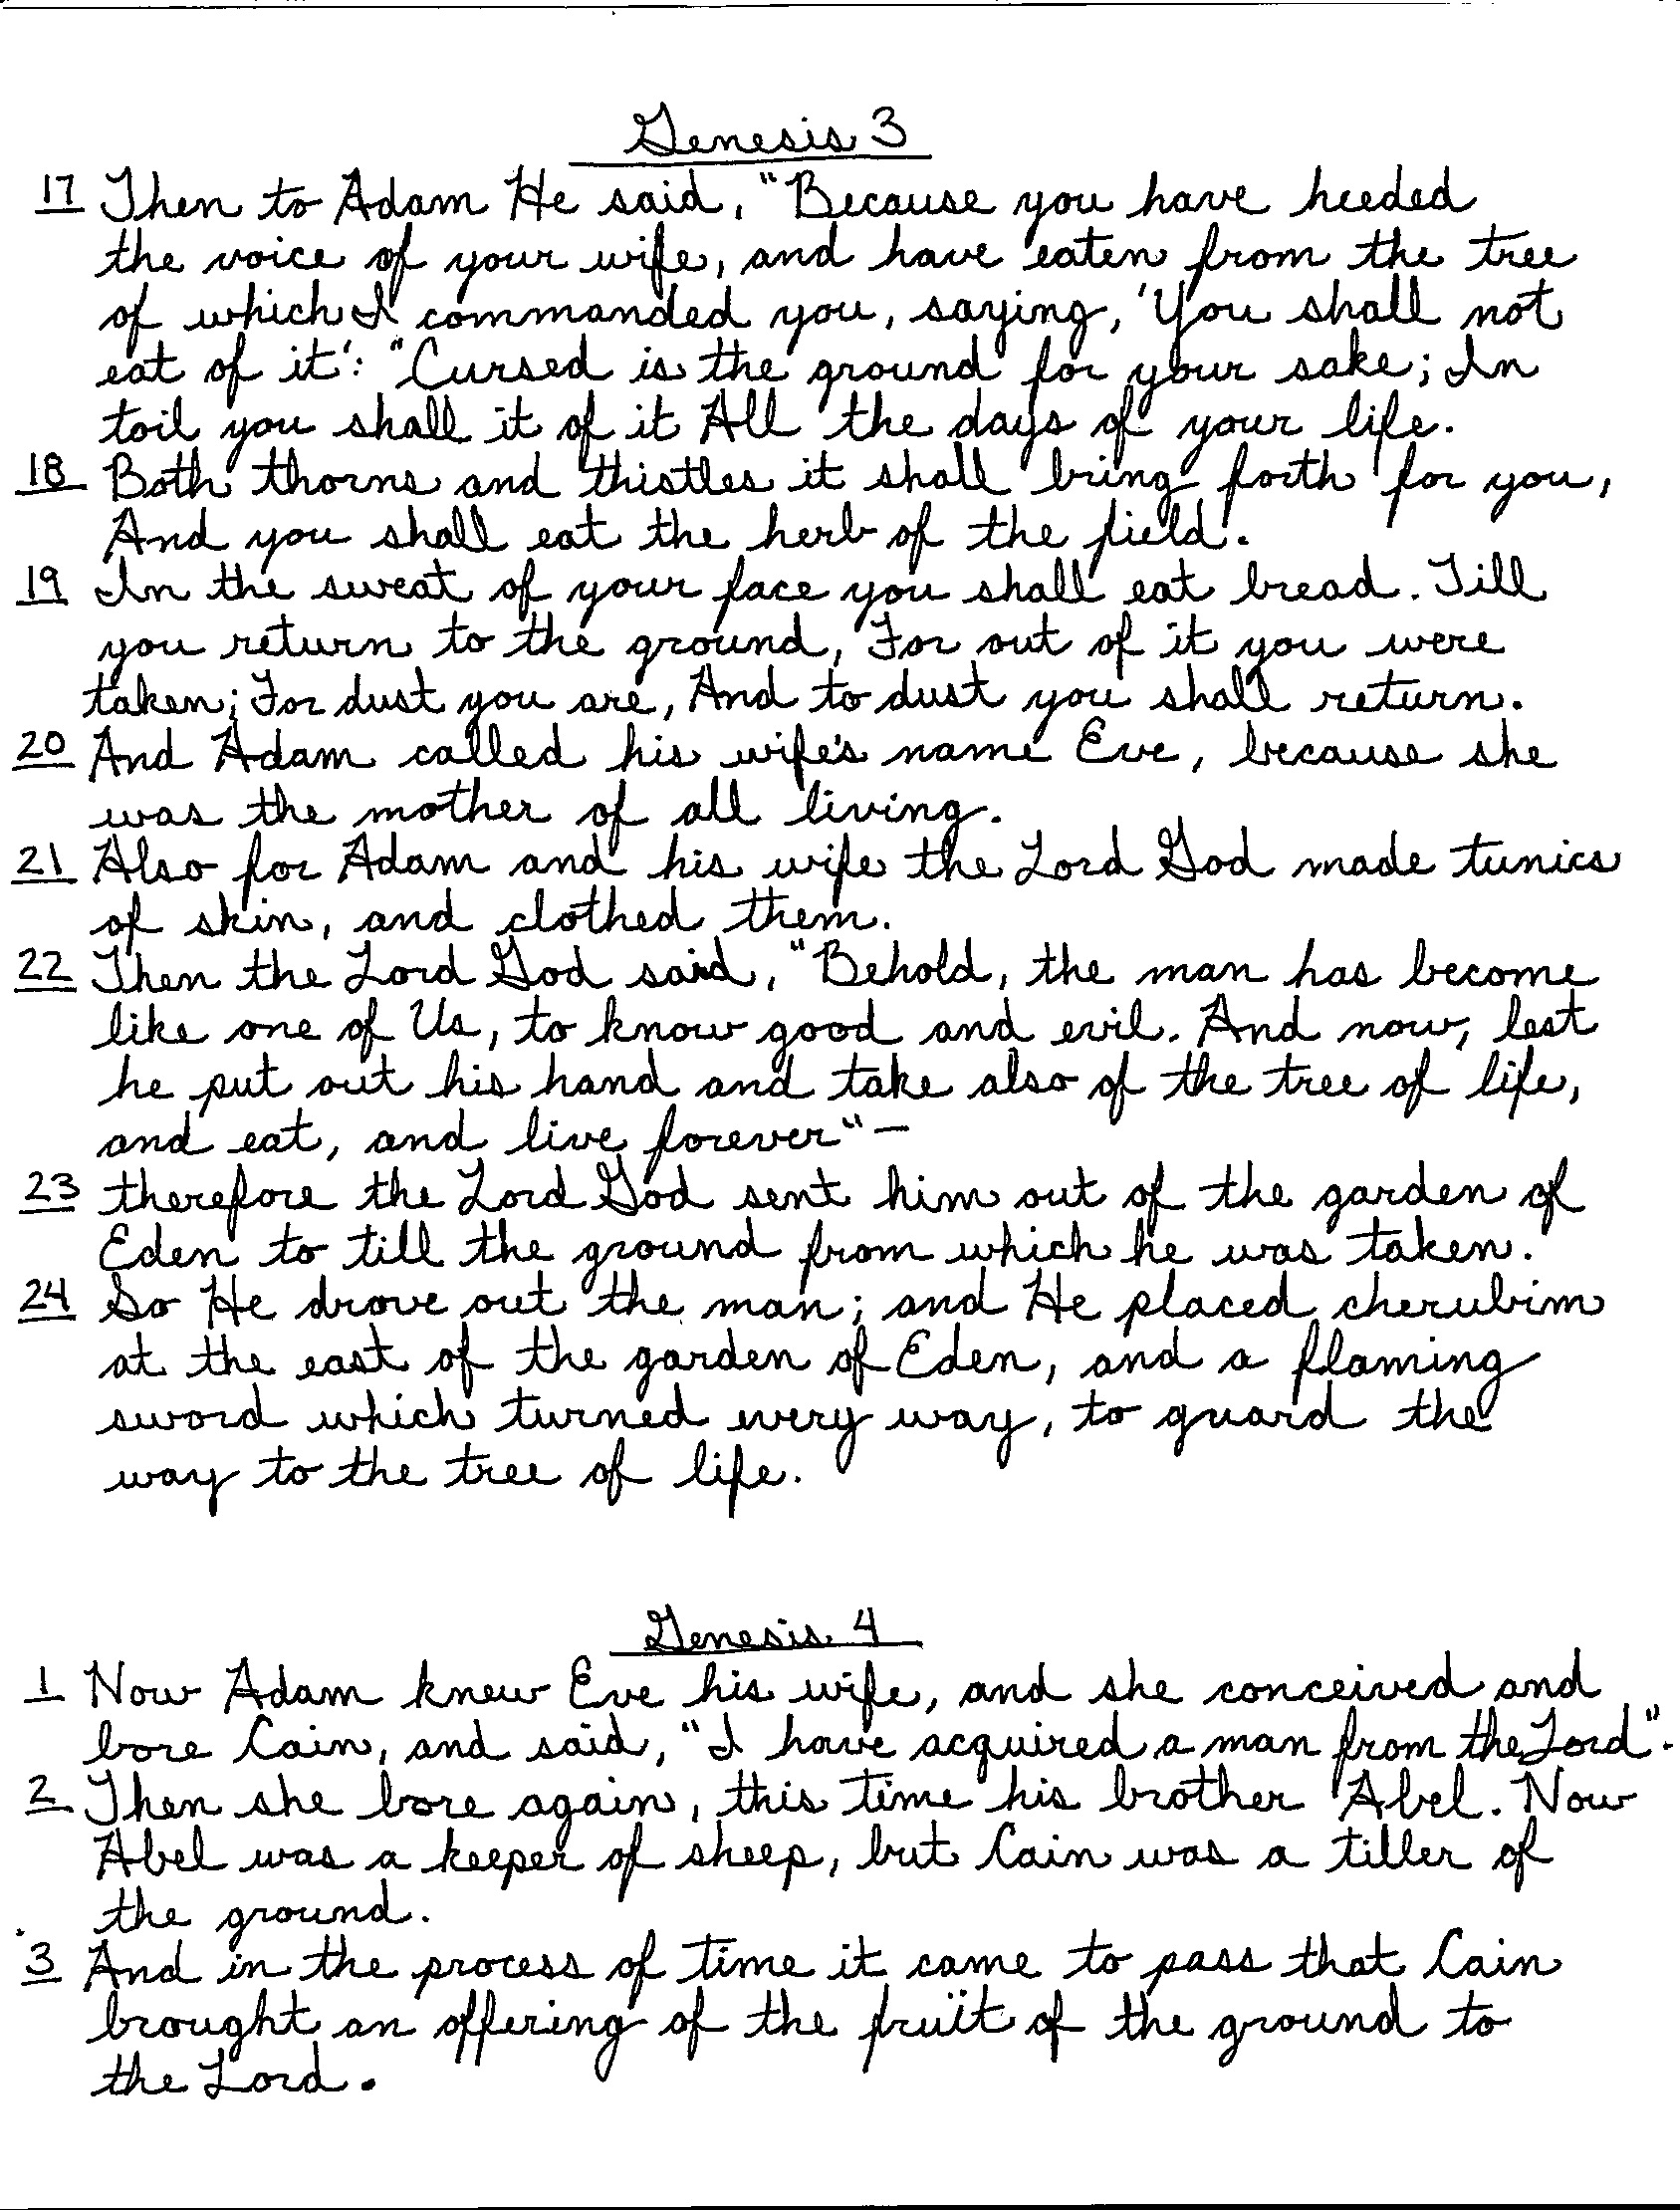 Genesis 3
17 Then to Adam He said, "Because you have heeded
the voice of your wife, and have eaten from the tree
of which I commanded you, saying, 'You shall not
eat of it': "Cursed is the ground for your sake; In
toil you shall it of it All the days of your life.
18 Both thorns and thistles it shall bring forth for you,
And you shall eat the herb of the field.
19 In the sweat of your face you shall eat bread. Till
you return to the ground, For out of it you were
taken; For dust you are, And to dust you shall return.
20 And Adam called his wife's name Eve, because she
was the mother of all living.
21 Also for Adam and his wife the Lord God made tunics
of skin, and clothed them.
22 Then the Lord God said, "Behold, the man has become
like one of Us, to know good and evil. And now, lest
he put out his hand and take also of the tree of life,
and eat, and live forever"—
23 therefore the Lord God sent him out of the garden of
Eden to till the ground from which he was taken.
24 So He drove out the man; and He placed cherubim
at the east of the garden of Eden, and a flaming
sword which turned every way, to guard the
way to the tree of life.
Genesis 4
1 Now Adam knew Eve his wife, and she conceived and
bore Cain, and said, "I have acquired a man from the Lord".
2 Then she bore again, this time his brother Abel. Now
Abel was a keeper of sheep, but Cain was a tiller of
the ground.
3 And in the process of time it came to pass that Cain
brought an offering of the fruit of the ground to
the Lord.